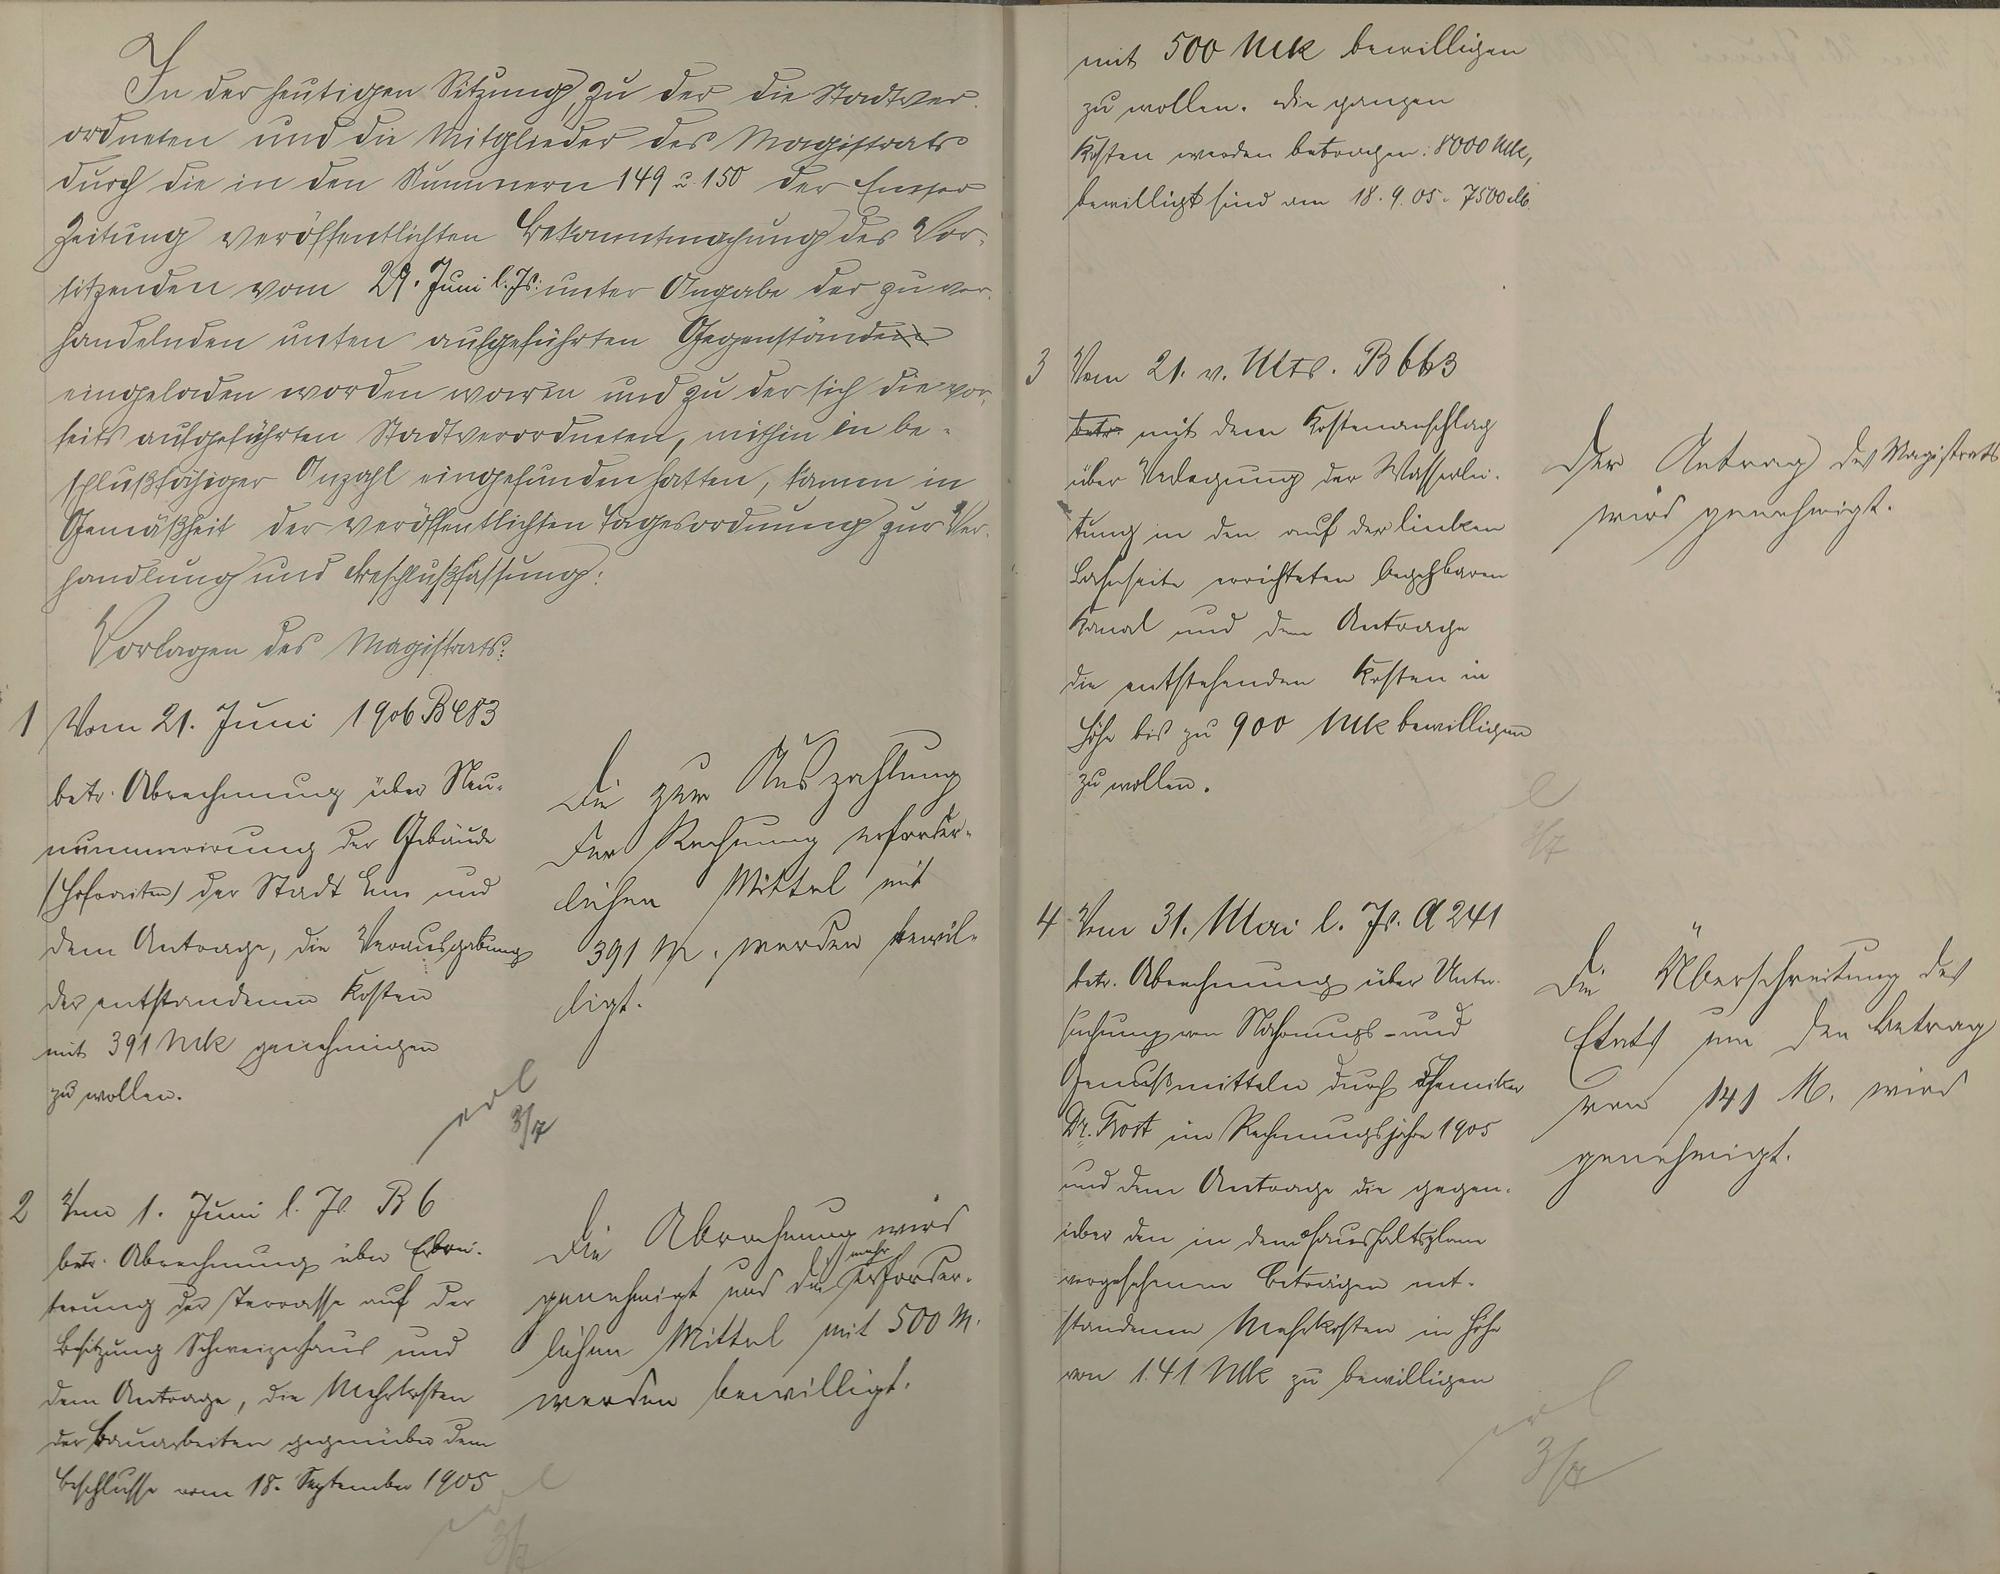 In der heutigen Sitzung, zu der die Stadtver-
ordneten und die Mitglieder des Magistrats
durch die in den Nummern 149 u. 150 der Emser
Zeitung veröffentlichten Bekanntmachung des Vor-
sitzenden vom 29. Juni l. Js. unter Angabe der zu ver-
handelnden unten aufgeführten Gegenstände
eingeladen worden waren und zu der sich die vor-
seits aufgeführten Stadtverordneten, mithin in be-
schlußfähiger Anzahl eingefunden hatten, kamen in
Gemäßheit der veröffentlichten Tagesordnung zur Ver-
handlung und Beschlußfassung:
Vorlagen des Magistrats:
1 Vom 21. Juni 1906 B 483
betr. Abrechnung über Neu-
nummerirung der Gebäude
(Hofraiten) der Stadt Ems und
dem Antrage, die Verausgabung
der entstandenen Kosten
mit 391 Mk genehmigen
zu wollen.
Die zur Auszahlung
der Rechnung erforder-
lichen Mittel mit
391 M. werden bewil-
ligt.
erl
3/7
2 Vom 1. Juni l. Js. B 6
betr. Abrechnung über Erbrei-
terung der Terrasse auf der
Besitzung Schweizerhaus und
dem Antrage, die Mehrkosten
der Bauarbeiten gegenüber dem
Beschlusse vom 18. September 1905
Die Abrechnung wird
genehmigt und die mehr erforder-
lichen Mittel mit 500 M.
werden bewilligt.
erl
3/7
mit 500 Mk bewilligen
zu wollen. Die ganzen
Kosten werden betragen: 8000 Mk,
bewilligt sind am 18.9.05. 7500 M.
3 Vom 21. v. Mts. B 663
betr. mit dem Kostenanschlag
über Verlegung der Wasserlei-
tung in den auf der linken
Lahnseite errichteten begehbaren
Kanal und dem Antrage
die entstehenden Kosten in
Höhe bis zu 900 Mk bewilligen
zu wollen.
Der Antrag des Magistrats
wird genehmigt.
erl
3/7
4 Vom 31. Mai l. Js. A 241
betr. Abrechnung über Unter-
suchung von Nahrungs- und
Genußmitteln durch Chemiker
Dr. Trost im Rechnungsjahre 1905
und dem Antrage die gegen-
über den in dem Haushaltsplane
vorgesehenen Beträgen ent-
standenen Mehrkosten in Höhe
von 141 Mk zu bewilligen
Die Überschreitung des
Etats um den Betrag
von 141 M. wird
genehmigt.
erl
3/7